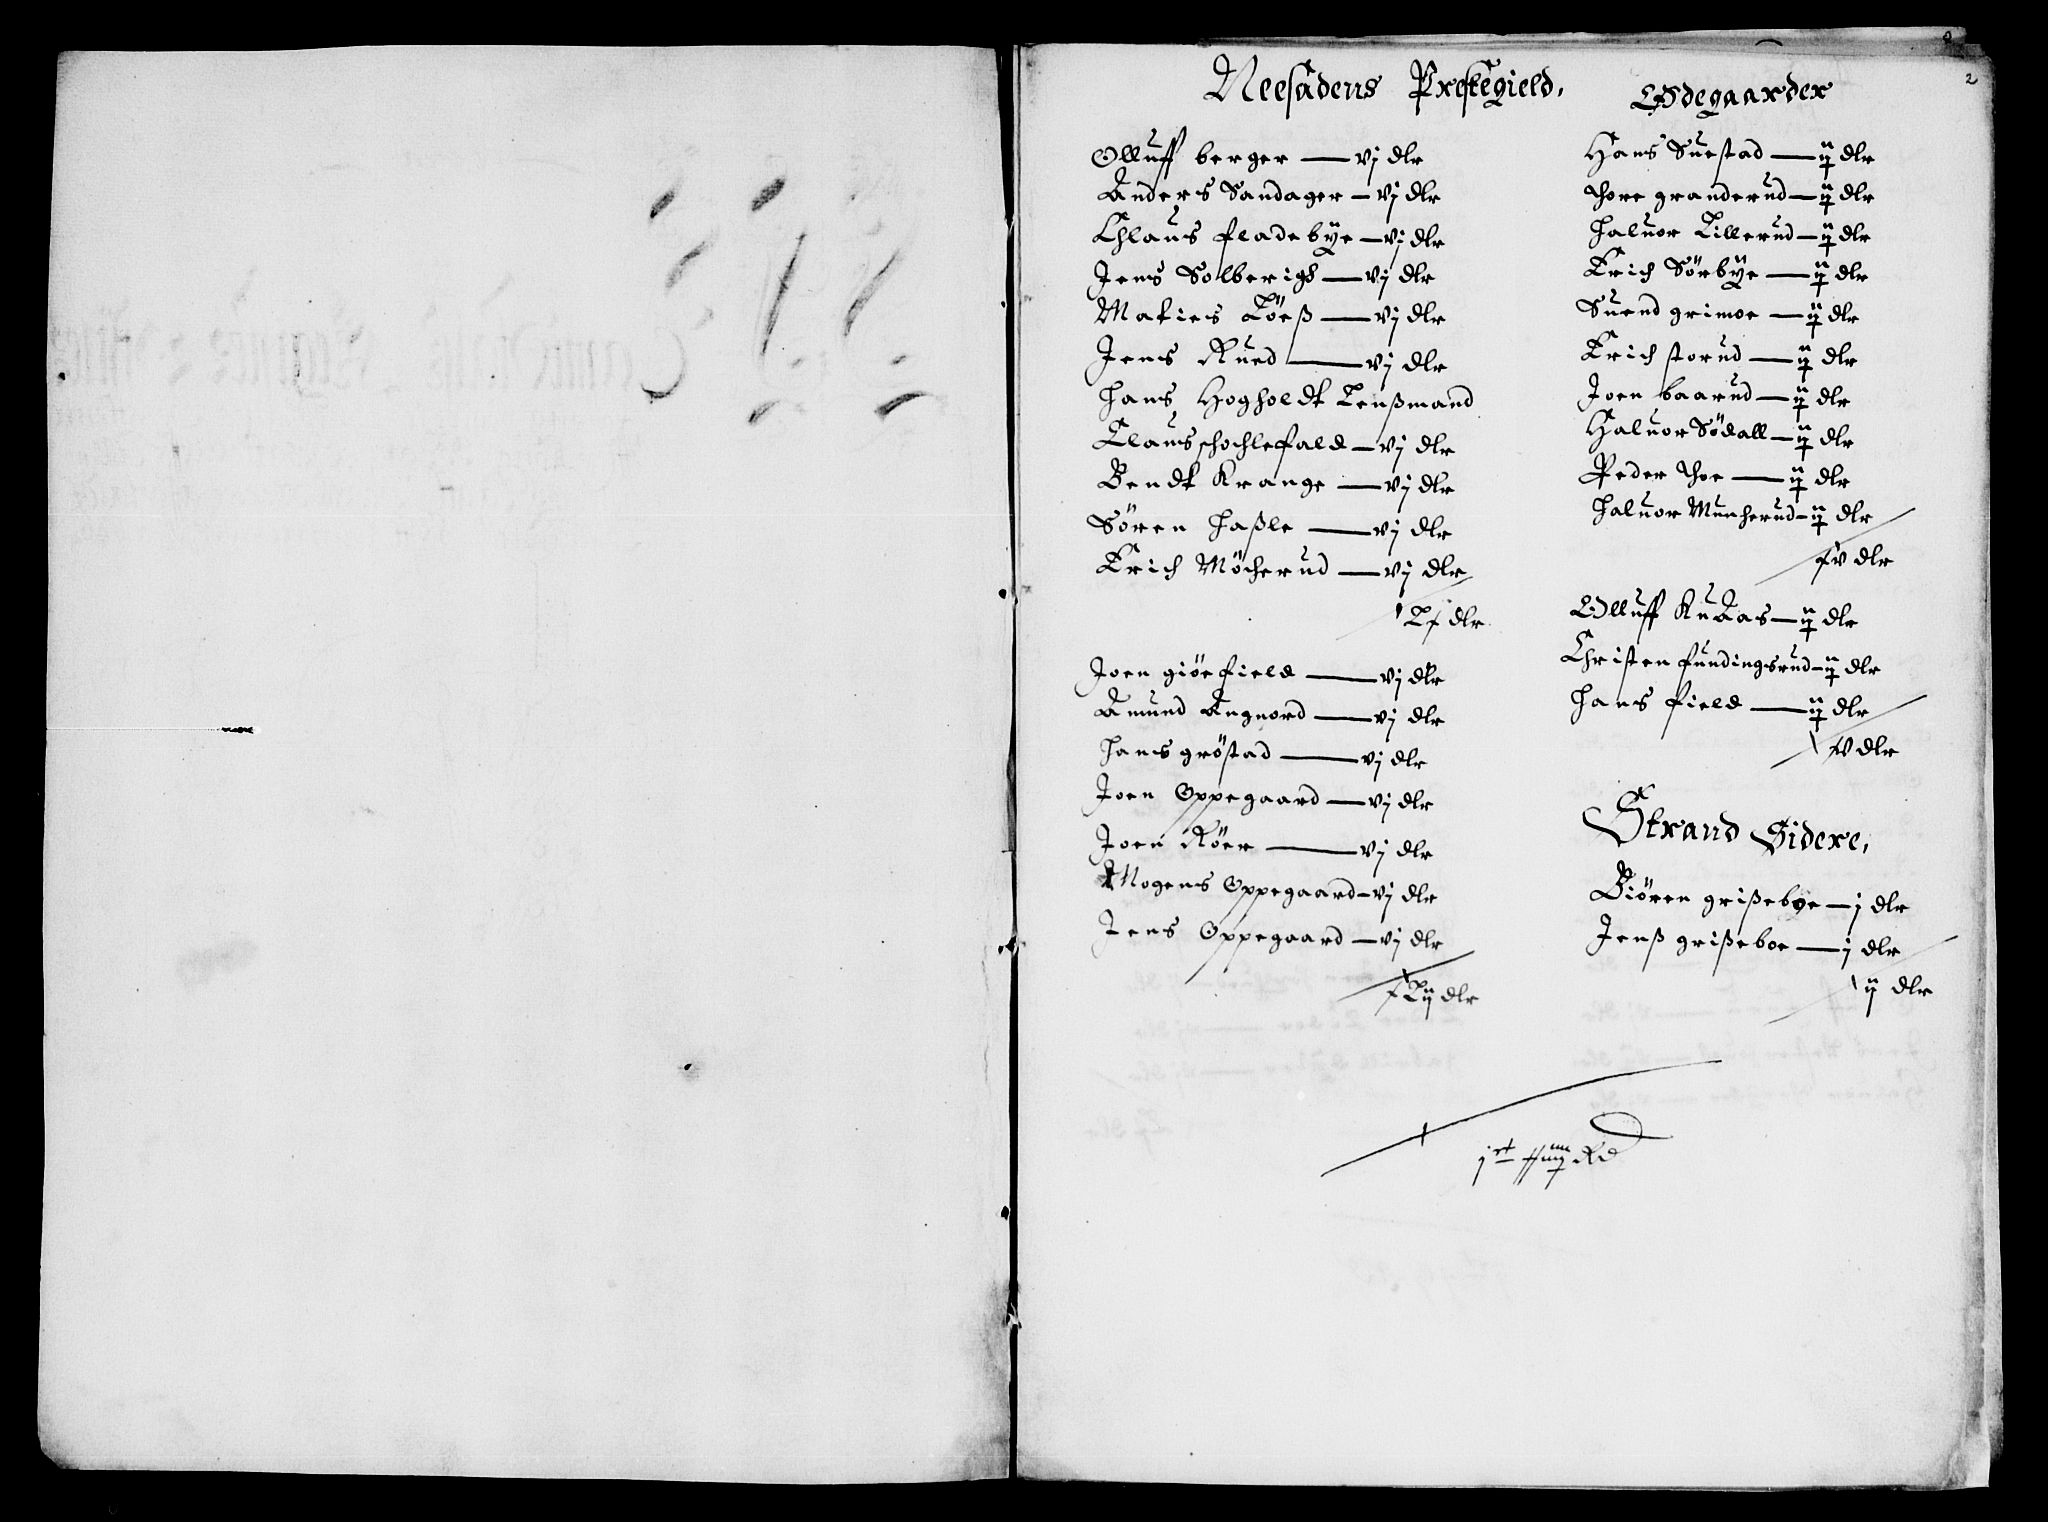 2
Neesådens Prestegield,
Olluff berger — vj dlr
Anders Sandager — vj dlr
Chlaus fladebÿe — vj dlr
Jens Solberigh — vj dlr
Maties Löeß — vj dlr
Jens Rued — vj dlr
Hans Hogholdt Lenßmand
Claus schochlefald — vj dlr
Bendt Krange — vj dlr
Sören Haßle — vj dlr
Erich Möcherud — vj dlr
dlr
Joen giöefield — vj dlr
Amund Angnord — vj dlr
Hans gröstad — vj dlr
Joen Oppegaard — vj dlr
Joen Röer — vj dlr
Mogens Oppegaard — vj dlr
Jens Oppegaard — vj dlr
dlr
Ödegaarder
Hans Suestad — dlr
Thore granderud — dlr
Haluor Lillerud — dlr
Erich Sörbÿe — dlr
Suend grimoe — dlr
Erich storud — dlr
Joen baarud — dlr
Haluor Södall — dlr
Peder Thoe — dlr
Haluor Muncherud — dlr
xv dlr
Olluff — dlr
Christen fundingsrud — dlr
Hans field — dlr
dlr
Strand Sidere,
Biören grißebye — j dlr
Jenß grißeboe — j dlr
ij dlr
Rd